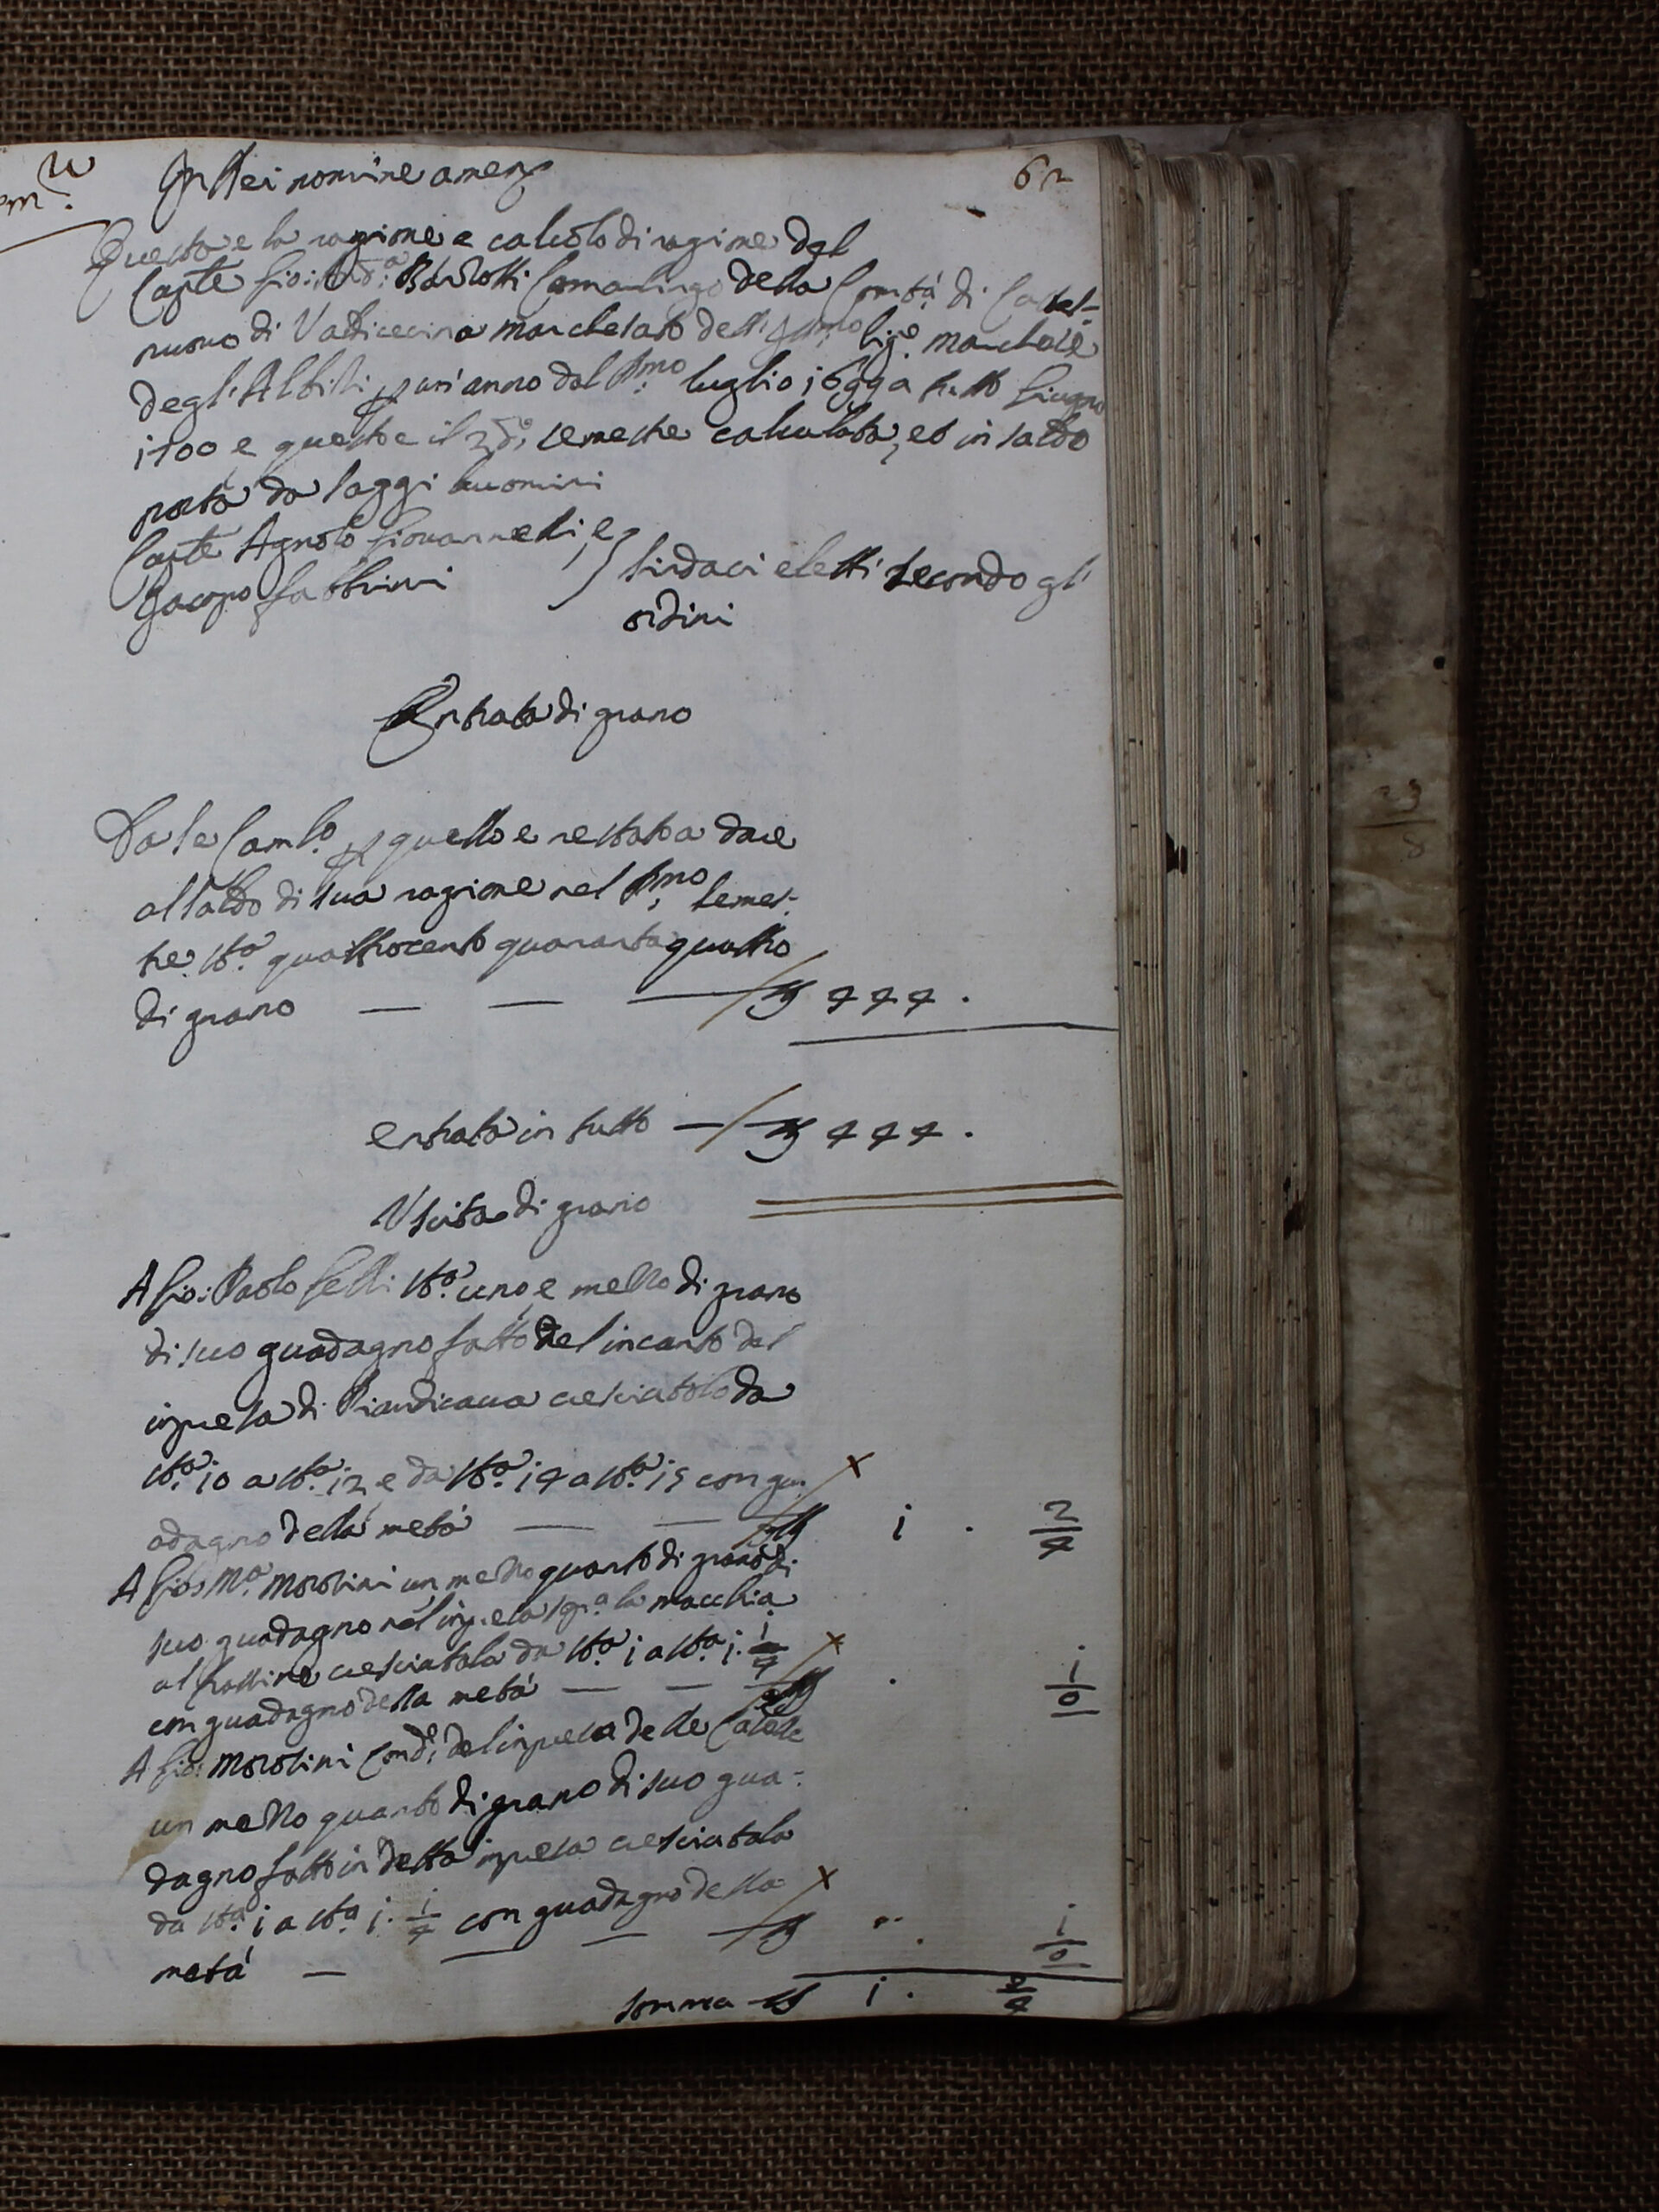 In Dei nomine amen
62
Questa e la ragione e calcolo di ragione del
Capte Gio: Bartolotti Camarlingo della Comtà di Castel=
nuovo di Valdicecina marchesato dell Sigre marchese
degl'Albizi p un'anno dal Pmo luglio 1699 a tutto Giugno
1700 e questo e il 2do semestre calculata, et in saldo
posta da saggi huomini
Capte Agnolo Giovannelli, e
Jacopo fabbrini } sindaci eletti secondo gl'
ordini
Entrata di grano
Da se Camlo p quello e restato a dare
al saldo di sua ragione nel Pmo semes:
tre sta quattrocento quarantaquattro
di grano — — — 444 .
entrata in tutto — 444 .
Uscita di grano
A Gio: Paolo Setti sta uno, e mezzo di grano
di suo guadagno fatto del incanto del
inpresa di Piandicava cresciutolo da
sta 10 a sta 12 e da sta 14 a sta 15 con gu
adagno della metà — — 1 . 2/4
A Gio: Ma Morolini un mezzo quarto di grano di
suo guadagno nel inpresa la macchia
al frassine cresciutola da sta 1 a sta 1. 1/4
con guadagno della metà — — . 1/0
A Gio: Morolini del inpresa delle Caselle
un mezzo quarto di grano di suo gua=
dagno fatto in detta inpresa cresciutola
da sta 1 a sta 1. 1/4 con guadagno della
metà — — — . 1/0
somma 1 . 3/4